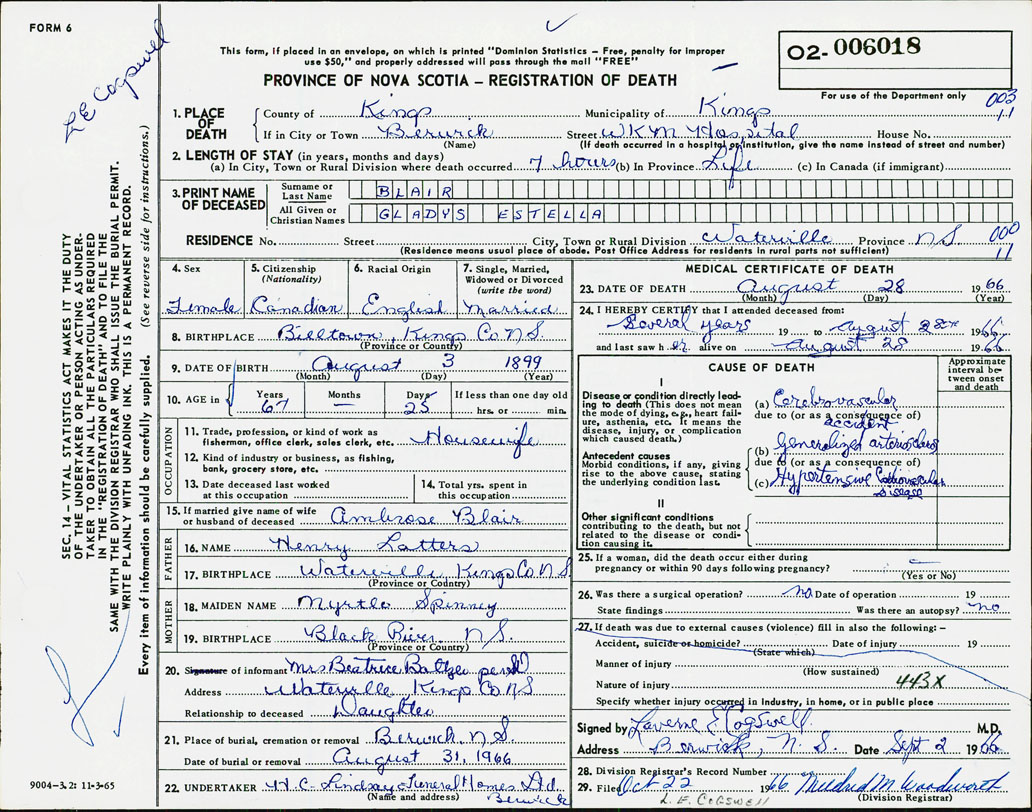 FORM 6
This form, if placed in an envelope, on which is printed "Dominion Statistics – Free, penalty for improper
use $50," and properly addressed will pass through the mail "FREE"
PROVINCE OF NOVA SCOTIA – REGISTRATION OF DEATH
02-006018
For use of the Department only
003
11
LE Cogswell
SEC. 14 – VITAL STATISTICS ACT MAKES IT THE DUTY
OF THE UNDERTAKER OR PERSON ACTING AS UNDER-
TAKER TO OBTAIN ALL THE PARTICULARS REQUIRED
IN THE "REGISTRATION OF DEATH" AND TO FILE THE
SAME WITH THE DIVISION REGISTRAR WHO SHALL ISSUE THE BURIAL PERMIT.
WRITE PLAINLY WITH UNFADING INK. THIS IS A PERMANENT RECORD.
Every item of information should be carefully supplied. (See reverse side for instructions.)
1. PLACE OF DEATH
County of Kings Municipality of Kings
If in City or Town Berwick Street WKM Hospital House No.
(Name) (If death occurred in a hospital or institution, give the name instead of street and number)
2. LENGTH OF STAY (in years, months and days)
(a) In City, Town or Rural Division where death occurred 7 hours (b) In Province Life (c) In Canada (if immigrant)
3. PRINT NAME OF DECEASED
Surname or Last Name BLAIR
All Given or Christian Names GLADYS ESTELLA
RESIDENCE No. Street City, Town or Rural Division Waterville Province NS
(Residence means usual place of abode. Post Office Address for residents in rural parts not sufficient)
000
11
4. Sex Female
5. Citizenship (Nationality) Canadian
6. Racial Origin English
7. Single, Married, Widowed or Divorced (write the word) Married
8. BIRTHPLACE Billtown, Kings Co NS
(Province or Country)
9. DATE OF BIRTH August 3 1899
(Month) (Day) (Year)
10. AGE in Years 67 Months — Days 25 If less than one day old hrs. or min.
OCCUPATION
11. Trade, profession, or kind of work as
fisherman, office clerk, sales clerk, etc. Housewife
12. Kind of industry or business, as fishing,
bank, grocery store, etc.
13. Date deceased last worked
at this occupation
14. Total yrs. spent in
this occupation
15. If married give name of wife
or husband of deceased Ambrose Blair
FATHER
16. NAME Henry Latters
17. BIRTHPLACE Waterville, Kings Co NS
(Province or Country)
MOTHER
18. MAIDEN NAME Myrtle Spinney
19. BIRTHPLACE Black River N.S.
(Province or Country)
20. Signature of informant Mrs Beatrice
Address Waterville Kings Co NS
Relationship to deceased Daughter
21. Place of burial, cremation or removal Berwick, N.S.
Date of burial or removal August 31, 1966
22. UNDERTAKER H.C. Lindsay Funeral Homes Ltd.
(Name and address) Berwick
9004-3.2: 11-3-65
MEDICAL CERTIFICATE OF DEATH
23. DATE OF DEATH August 28 1966
(Month) (Day) (Year)
24. I HEREBY CERTIFY that I attended deceased from:
Several years 19 to August 28th 1966
and last saw her alive on August 28 1966
CAUSE OF DEATH
Approximate interval between onset and death
I
Disease or condition directly leading to death (This does not mean the mode of dying, e.g., heart failure, asthenia, etc. It means the disease, injury, or complication which caused death.)
(a) Cerebrovascular
due to (or as a consequence of)
accident
Antecedent causes
Morbid conditions, if any, giving rise to the above cause, stating the underlying condition last.
(b) Generalized
due to (or as a consequence of)
(c) Hypertensive Cardiovascular
Disease
II
Other significant conditions
contributing to the death, but not related to the disease or condition causing it.
25. If a woman, did the death occur either during
pregnancy or within 90 days following pregnancy? —
(Yes or No)
26. Was there a surgical operation? no Date of operation 19
State findings Was there an autopsy? no
27. If death was due to external causes (violence) fill in also the following:–
Accident, suicide or homicide? Date of injury 19
(State which)
Manner of injury
(How sustained)
Nature of injury 443X
Specify whether injury occurred in Industry, in home, or in public place
Signed by Laverne E Cogswell M.D.
Address Berwick, N.S. Date Sept 2 1966
28. Division Registrar's Record Number
29. Filed Oct 22 1966 Mildred M Woodworth
Division Registrar
L. E. COGSWELL